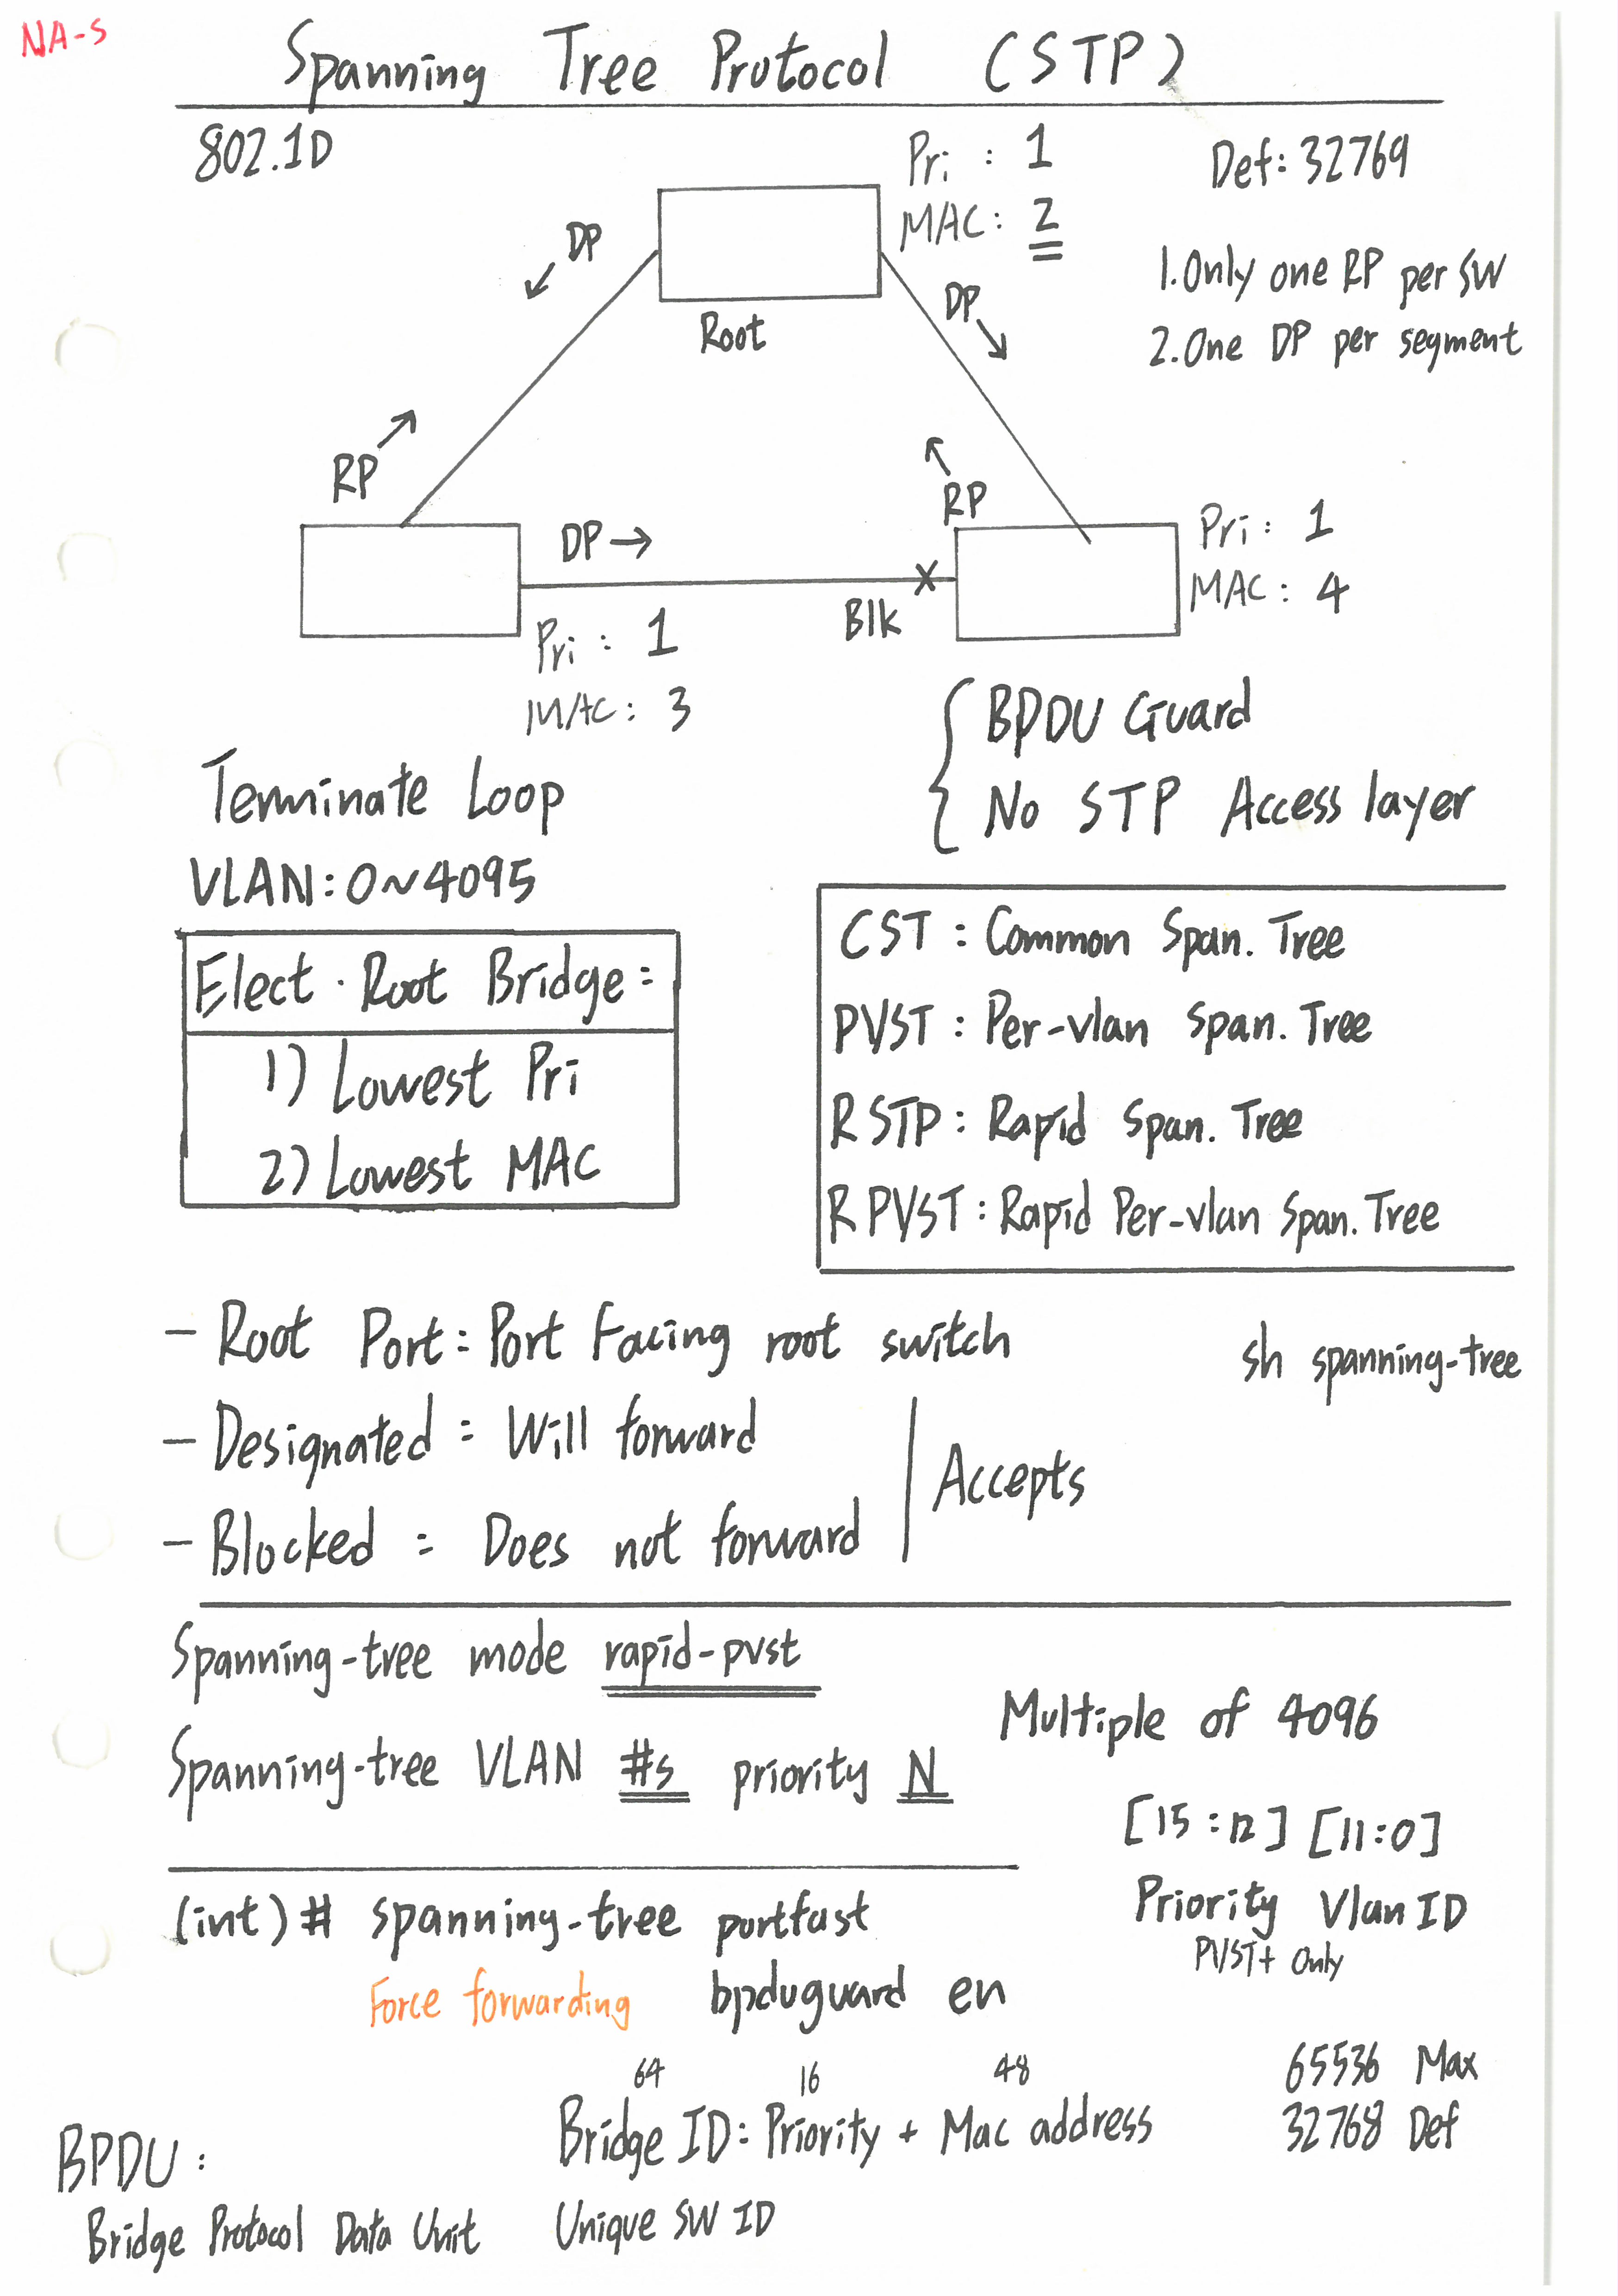 NA-S
Spanning Tree Protocol (STP)
802.1D
Pri : 1
MAC: 2
Def: 32769
DP
Root
DP
1. Only one RP per SW
2. One DP per segment
RP
RP
DP
Blk
Pri : 1
MAC : 4
Pri : 1
MAC : 3
BPDU Guard
No STP Access layer
Terminate Loop
VLAN: 0~4095
Elect. Root Bridge:
1) Lowest Pri
2) Lowest MAC
CST : Common Span. Tree
PVST : Per-vlan Span. Tree
RSTP : Rapid Span. Tree
RPVST : Rapid Per-vlan Span. Tree
- Root Port : Port Facing root switch
sh spanning-tree
- Designated : Will forward
- Blocked : Does not forward
Accepts
Spanning-tree mode rapid-pvst
Spanning-tree VLAN #s priority N
Multiple of 4096
[15:12] [11:0]
Priority Vlan ID
PVST+ Only
(int)# spanning-tree portfast
Force forwarding
bpduguard en
64 16 48
Bridge ID: Priority + Mac address
Unique SW ID
65536 Max
32768 Def
BPDU :
Bridge Protocol Data Unit